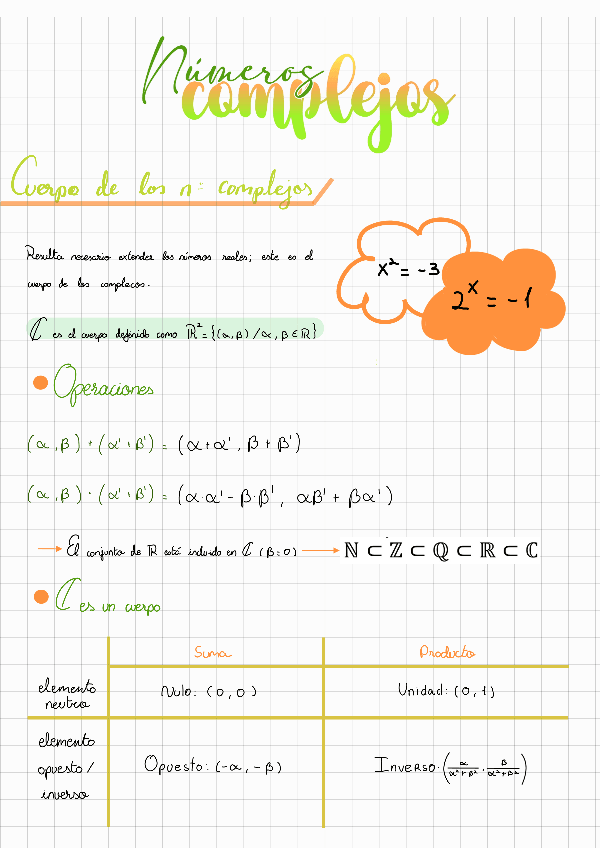 Números
complejos
Cuerpo de los nº complejos
x² = -3
2^x = -1
Resulta necesario extender los números reales; este es el
cuerpo de los complejos.
ℂ es el cuerpo definido como ℝ² = {(α, β) / α, β ∈ ℝ}
Operaciones
(α, β) + (α' + β') = (α + α', β + β')
(α, β) · (α' + β') = (α·α' - β·β', αβ' + βα')
→ El conjunto de ℝ está incluido en ℂ (β=0) → ℕ ⊂ ℤ ⊂ ℚ ⊂ ℝ ⊂ ℂ
ℂ es un cuerpo
Suma Producto
elemento
neutro
Nulo: (0, 0) Unidad: (0, 1)
elemento
opuesto /
inverso
Opuesto: (-α, -β) Inverso: (α/(α²+β²), β/(α²+β²))